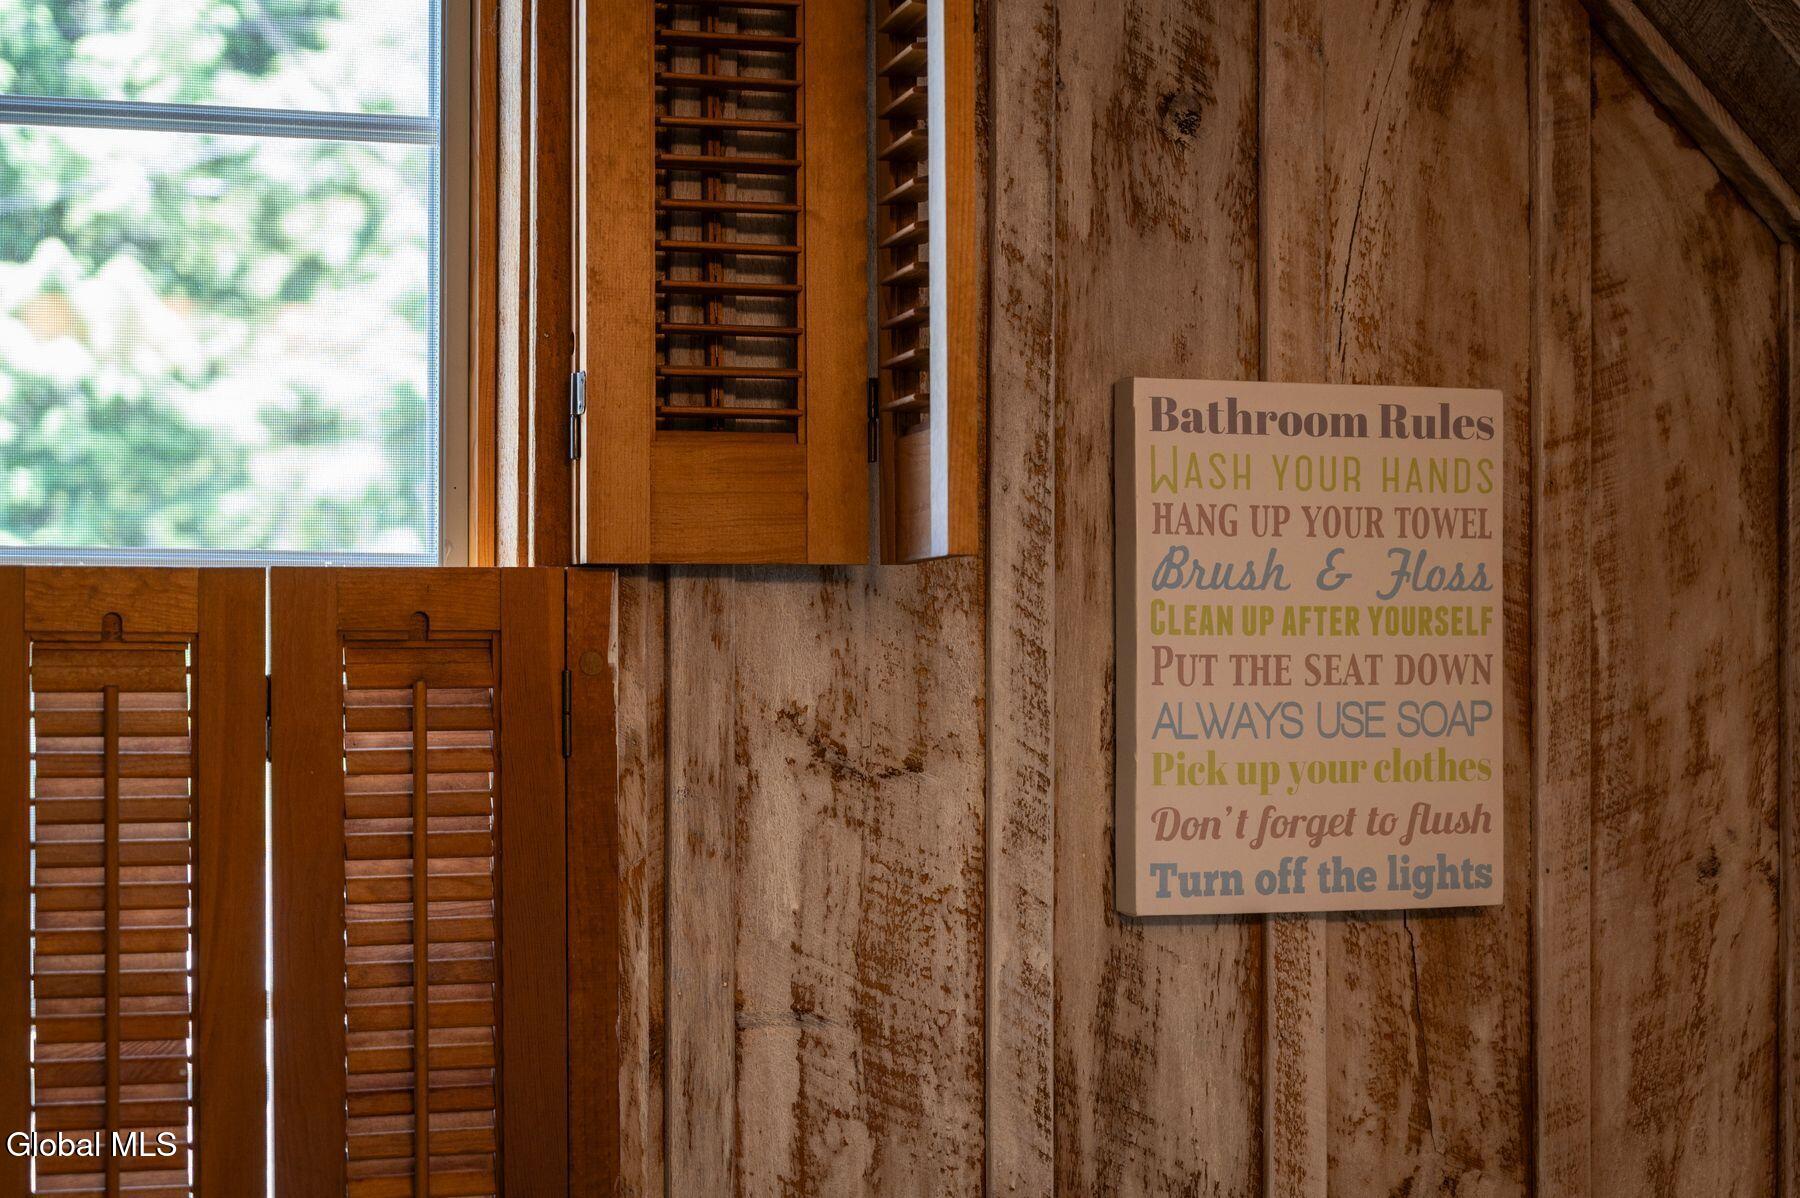 Bathroom Rules
WASH YOUR HANDS
HANG UP YOUR TOWEL
Brush & Floss
CLEAN UP AFTER YOURSELF
PUT THE SEAT DOWN
ALWAYS USE SOAP
Pick up your clothes
Don't forget to flush
Turn off the lights
Global MLS